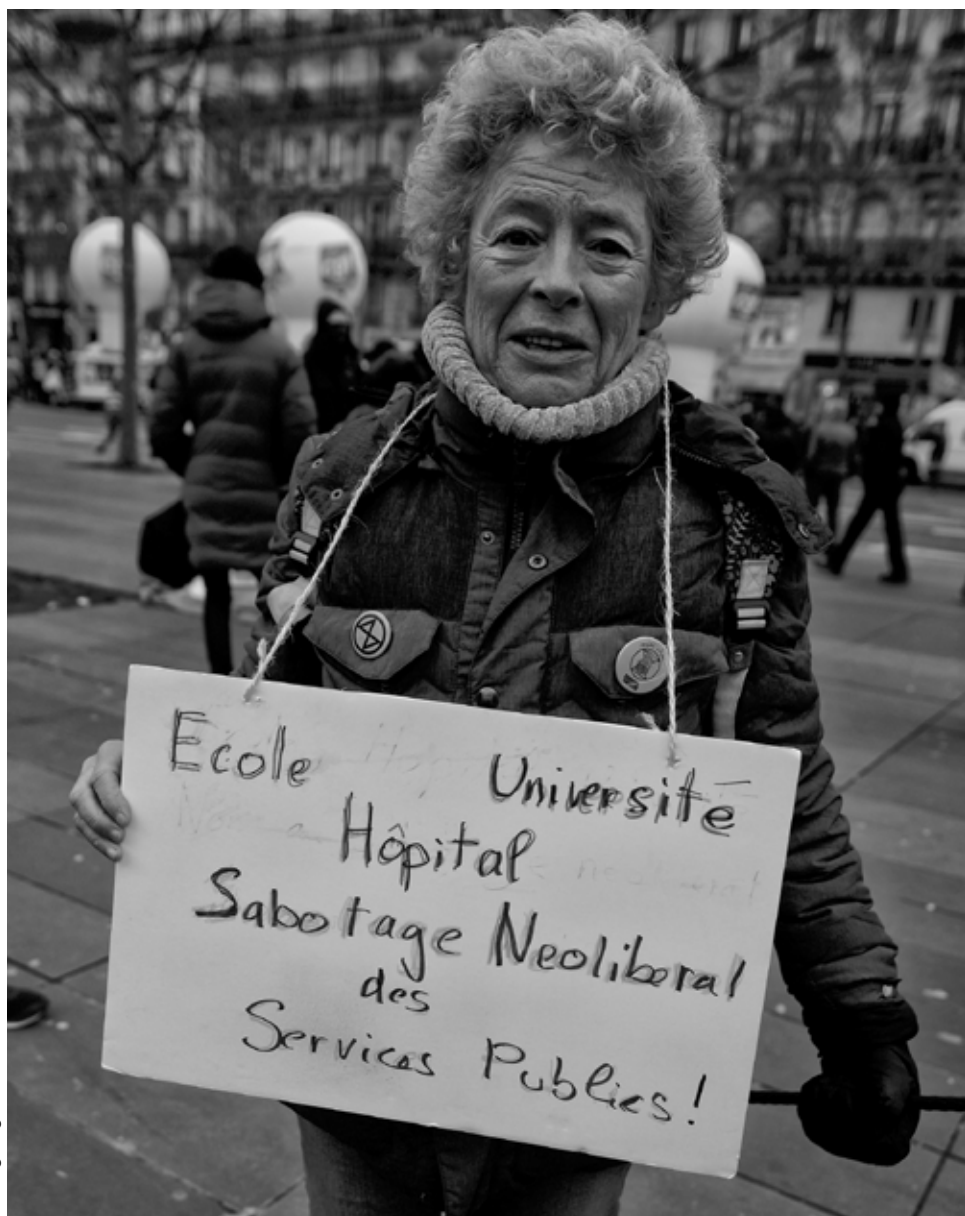 Ecole Université
Hôpital
Sabotage Neoliberal
des
Services Publics !